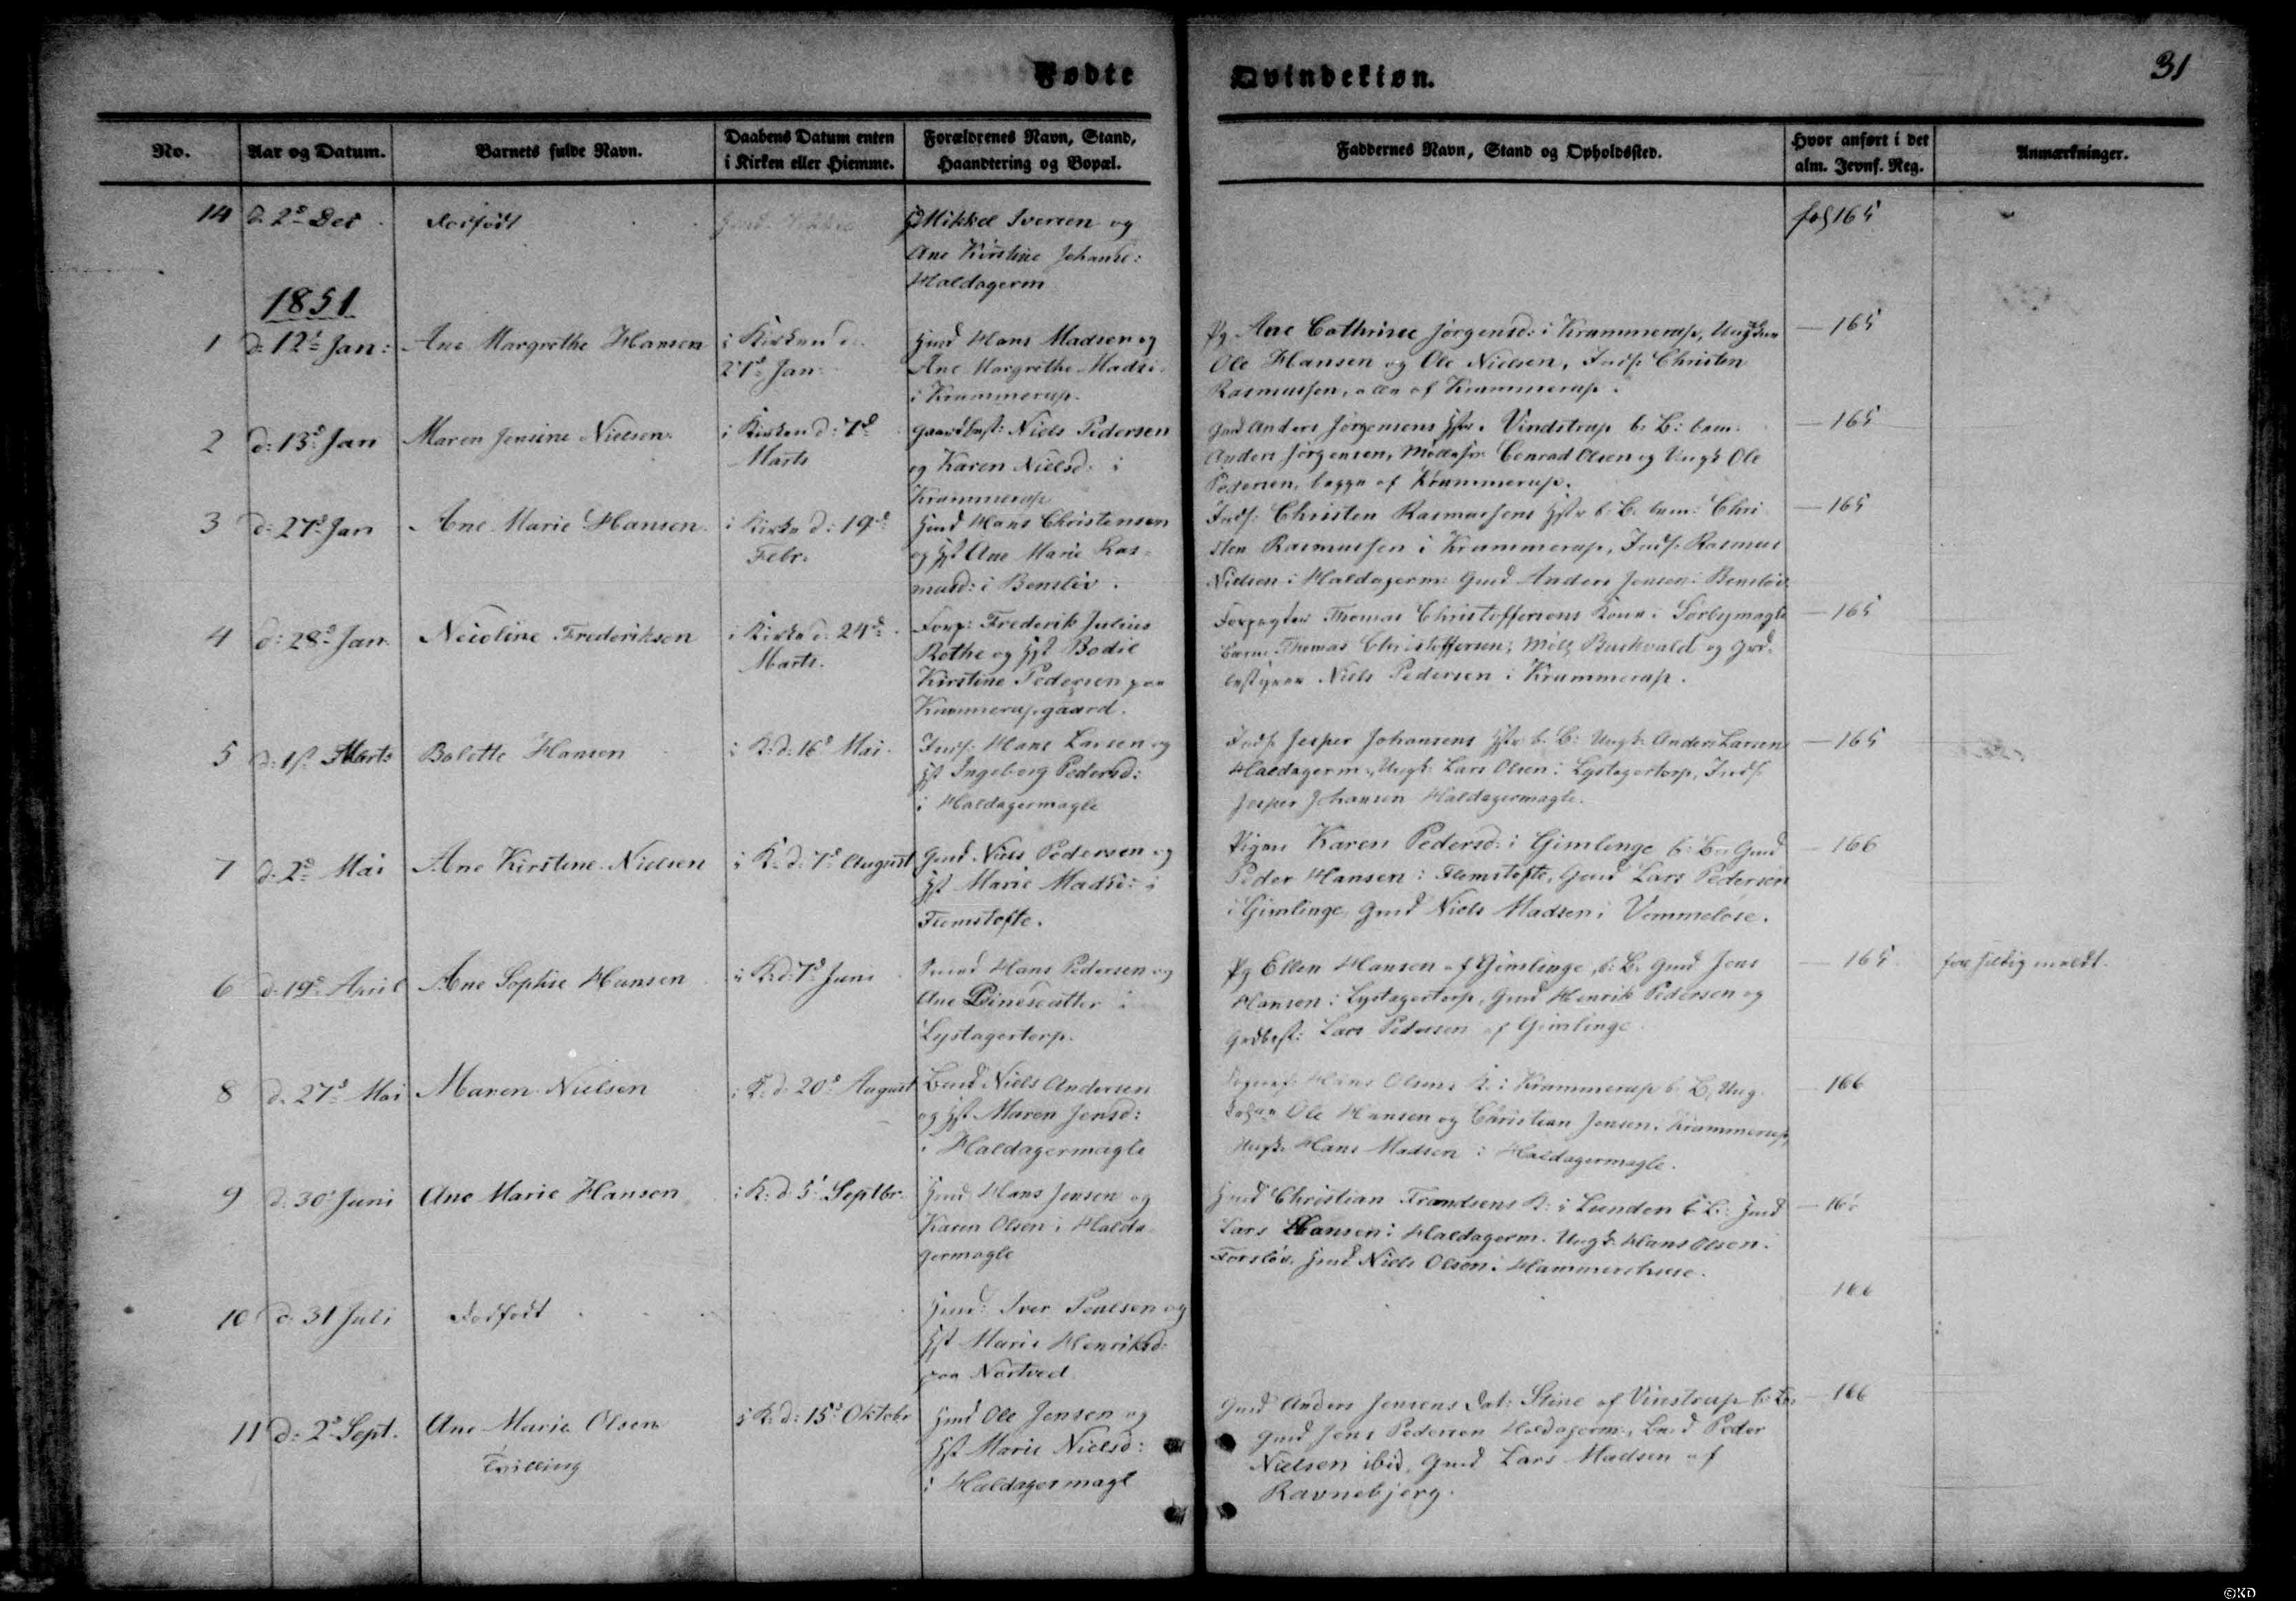 Fødte
Qvindekiøn.
31
No.
Aar og Datum.
Barnets fulde Navn.
Daabens Datum enten
i Kirken eller Hiemme.
Forældrenes Navn, Stand,
Haandtering og Bopæl.
Faddernes Navn, Stand og Opholdssted.
Hvor anført i det
alm. Jevnf. Reg.
Anmærkninger.
14
d. 2d Dec
Dødfødt
Mikkel Iversen og
Ane Kirstine Johansd:
Haldagerm
fol 165
1851
1
d: 12t Jan:
Ane Margrethe Hansen
i Kirken d.
27d Jan
Hmd Hans Madsen og
Ane Margrethe Madsd.
i Krummerup.
Pg Ane Cathrine Jørgensd: i Krummerup,
Ole Hansen og Ole Nielsen, Inds. Christen
Rasmussen, alle af Krummerup.
165
2
d: 13d Jan
Maren Jensine Nielsen
i Kirken d: 7d
Marts
Gaardbest: Niels Pedersen
og Karen Nielsd: i
Krummerup
Gmd Anders Jørgensens Hstr. Vindstrup b: B: bem.
Anders Jørgensen, Conrad Olsen og Ungk Ole
Pedersen, begge af Krummerup.
165
3
d: 27d Jan
Ane Marie Hansen
i Kirke d: 19d
Febr.
Hmd Hans Christensen
og Hst Ane Marie Ras-
musd: i Bensløv.
Inds: Christen Rasmussens Hstr b. B. bem: Chri
sten Rasmussen i Krummerup, Inds. Rasmus
Nielsen i Haldagerm: Gmd Anders Jensen i Bensløv
165
4
d: 28d Jan.
Nicoline Frederiksen
i Kirke d: 24d
Marts.
Forp: Frederik Julius
Rothe og Hst Bodil
Kirstine Pedersen paa
Krummerupgaard.
Forpagter Thomas Christoffersens Kone i Sørbymagle
bem. Thomas Christoffersen, Møll. Buchvald og Grd.
bestyrer Niels Pedersen i Krummerup.
165
5
d: 1st Marts
Bolette Hansen
i K: d: 16d Mai
Inds: Hans Larsen og
Hst Ingeborg Pedersd:
i Haldagermagle
Inds. Jesper Johansens Hstr b. B: Ungk: Anders Larsen
Haldagerm:, Ungk: Lars Olsen i Lystagertorp, Inds.
Jesper Johansen Haldagermagle.
165
7
d. 2d Mai
Ane Kirstine Nielsen
i K: d: 7d August
Gmd Niels Pedersen og
Hst Marie Madsd: i
Flemstofte.
Pigen Karen Pedersd: i Gimlinge b: B: Gmd
Peder Hansen i Flemstofte, Gmd Lars Pedersen
i Gimlinge, Gmd Niels Madsen i Vemmeløse.
166
6
d. 19d April
Ane Sophie Hansen
i K: d: 7d Juni
Hans Pedersen og
Ane i
Lystagertorp.
Pg Ellen Hansen af Gimlinge, b: B. Gmd Jens
Hansen i Lystagertorp, Gmd Henrik Pedersen og
Grdbest: Lars Pedersen af Gimlinge
165
for sildig meldt.
8
d. 27d Mai
Maren Nielsen
i K: d: 20d August
Bmd Niels Andersen
og Hst Maren Jensd:
i Haldagermagle
Hans Olsens K. i Krummerup b: B, Ung.
Ole Hansen og Christian Jensen i Krummerup,
Ungk. Hans Madsen i Haldagermagle.
166
9
d. 30t Juni
Ane Marie Hansen
i K: d. 5t Septbr.
Hmd Hans Jensen og
Karen Olsen i Halda-
germagle
Hmd Christian Frandsens K: i Lunden b: B: Hmd
Lars Hansen i Haldagerm. Ungk. Hans Olsen i
Forsløv. Hmd Niels Olsen i
10
d. 31 Juli
Dødfødt
Hmd: Iver Poulsen og
Hst Marie Henriksd:
paa Nørtved
166
11
d: 2d Sept.
Ane Marie Olsen
Tvilling
i K: d: 15d Oktobr
Hmd Ole Jensen og
Hst Marie Nielsd:
i Haldagermagl
Gmd Anders Jensens Dat: Stine af Vinstrup b: B:
Gmd Jens Pedersen Haldagerm:, Bmd Peder
Nielsen ibid. Gmd Lars Madsen af
Ravnebjerg.
166
©KD